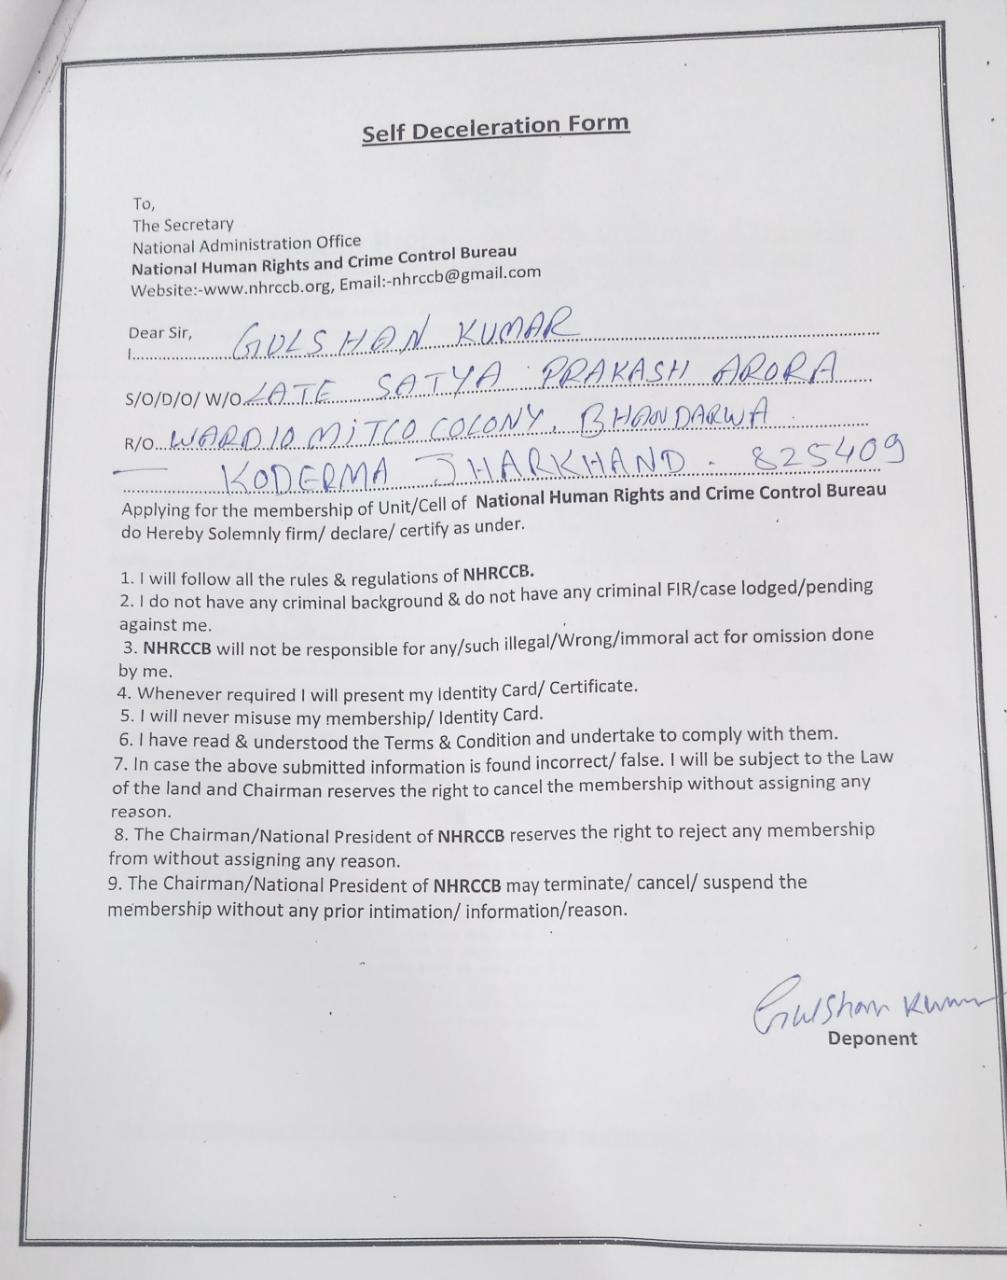 Self Deceleration Form
To,
The Secretary
National Administration Office
National Human Rights and Crime Control Bureau
Website:-www.nhrccb.org, Email:-nhrccb@gmail.com
Dear Sir,
I GULSHAN KUMAR
S/O/D/O/ W/O LATE SATYA PRAKASH ARORA
R/O WARD 10 MITCO COLONY, BHANDARWA
KODERMA JHARKHAND - 825409
Applying for the membership of Unit/Cell of National Human Rights and Crime Control Bureau
do Hereby Solemnly firm/ declare/ certify as under.
1. I will follow all the rules & regulations of NHRCCB.
2. I do not have any criminal background & do not have any criminal FIR/case lodged/pending
against me.
3. NHRCCB will not be responsible for any/such illegal/Wrong/immoral act for omission done
by me.
4. Whenever required I will present my Identity Card/ Certificate.
5. I will never misuse my membership/ Identity Card.
6. I have read & understood the Terms & Condition and undertake to comply with them.
7. In case the above submitted information is found incorrect/ false. I will be subject to the Law
of the land and Chairman reserves the right to cancel the membership without assigning any
reason.
8. The Chairman/National President of NHRCCB reserves the right to reject any membership
from without assigning any reason.
9. The Chairman/National President of NHRCCB may terminate/ cancel/ suspend the
membership without any prior intimation/ information/reason.
Gulshan Kumar
Deponent